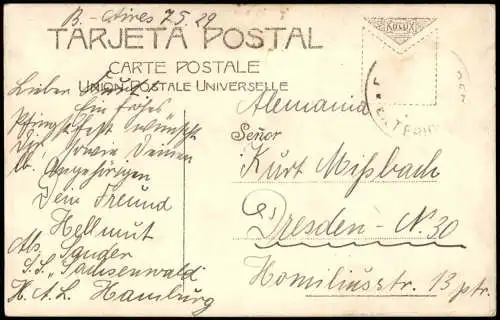 B.-Aires 7.5.29
TARJETA POSTAL
CARTE POSTALE
UNION POSTALE UNIVERSELLE
Lieber Kurt
Ein frohes
Pfingstfest wünscht
Dir sowie Deinen
lb. Angehörigen
Dein Freund
Hellmut
Abs. Sander
S.S. „Sachsenwald
H.A.L. Hamburg
Alemania
Señor
Kurt Mißbach
Dresden - N.30
Homiliusstr. 13 ptr.